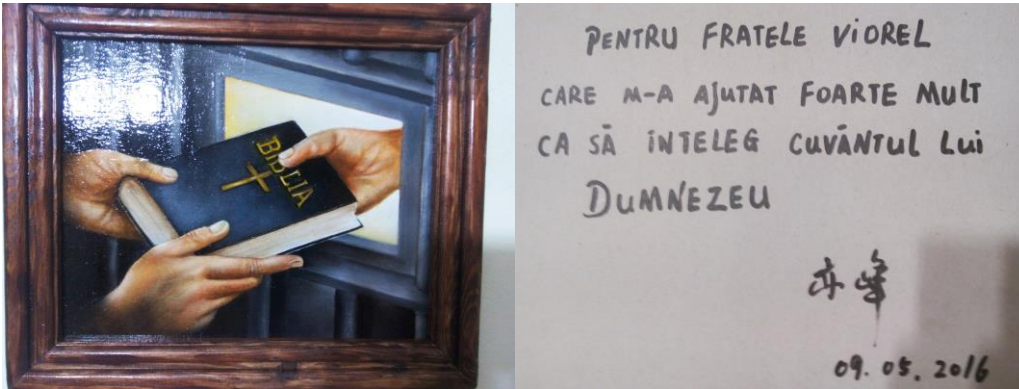 BIBLIA
PENTRU FRATELE VIOREL
CARE M-A AJUTAT FOARTE MULT
CA SĂ INTELEG CUVÂNTUL LUI
DUMNEZEU
09.05.2016